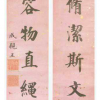 脩潔斯文
容物直繩
成親王